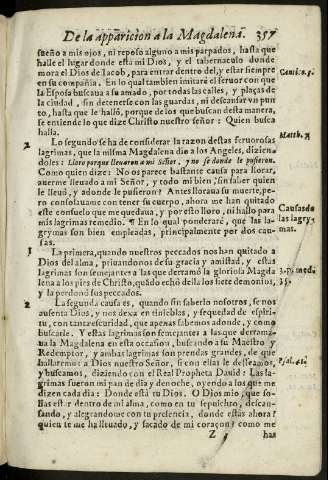 De la apparicion a la Magdalena. 357
sueño a mis ojos, ni reposo alguno a mis parpados, hasta que
halle el lugar donde està mi Dios, y el tabernaculo donde
mora el Dios de Iacob, para entrar dentro del, y estar siempre
en su compañia. En lo qual tambien imitarè el feruor con que
la Esposa buscaua a su amado, por todas las calles, y plaças de
la ciudad, sin detenerse con las guardas, ni descansar vn pun
to, hasta que le hallò, porque de los que buscan desta manera,
se entiende lo que dize Christo nuestro señor: Quien busca
halla.
Cant. 3.
Matth. 7.
2 Lo segundo se ha de considerar la razon destas feruorosas
lagrimas, que la misma Magdalena dio a los Angeles, dizien
doles: Lloro porque lleuaron a mi Señor, y no se donde le pusieron.
Como quien dize: No os parece bastante causa para llorar,
auerme lleuado a mi Señor, y todo mi bien, sin saber quien
le lleuò, y adonde le pusieron? Antes lloraua su muerte, pe-
ro consolauame con tener su cuerpo, ahora me han quitado
este consuelo que me quedaua, y por esto lloro, ni hallo para
mis lagrimas remedio. ¶ En lo qual ponderarè, que las la-
grymas son bien empleadas, principalmente por dos cau-
sas.
Causas de
las lagry-
mas.
1 La primera, quando nuestros pecados nos han quitado a
Dios del alma, priuandonos de su gracia y amistad, y estas
lagrimas son semejantes a las que derramò la gloriosa Magda
lena a los pies de Christo, quãdo echò della los siete demonios,
y la perdonò sus pecados.
3. p. med.
2 La segunda causa es, quando sin saberlo nosotros, se nos
ausenta Dios, y nos dexa en tinieblas, y sequedad de espiri-
tu, con tanta escuridad, que apenas sabemos adonde, y como
buscarle. Y estas lagrimas son semejantes a las que derrama-
ua la Magdalena en esta occasion, buscando a su Maestro y
Redemptor, y ambas lagrimas son prendas grandes, de que
hallaremos a Dios nuestro Señor, si con ellas le desseamos,
y buscamos, diziendo con el Real Propheta Dauid: Las la-
grimas fueron mi pan de dia y de noche, oyendo a los que me
dizen cada dia: Donde està tu Dios. O Dios mio, que so-
lias estar dentro de mi alma, como en tu sepulchro, descan-
sando, y alegrandome con tu presencia, donde estàs ahora?
quien te me ha lleuado, y sacado de mi coraçon? como me
Psal. 41.
Z has